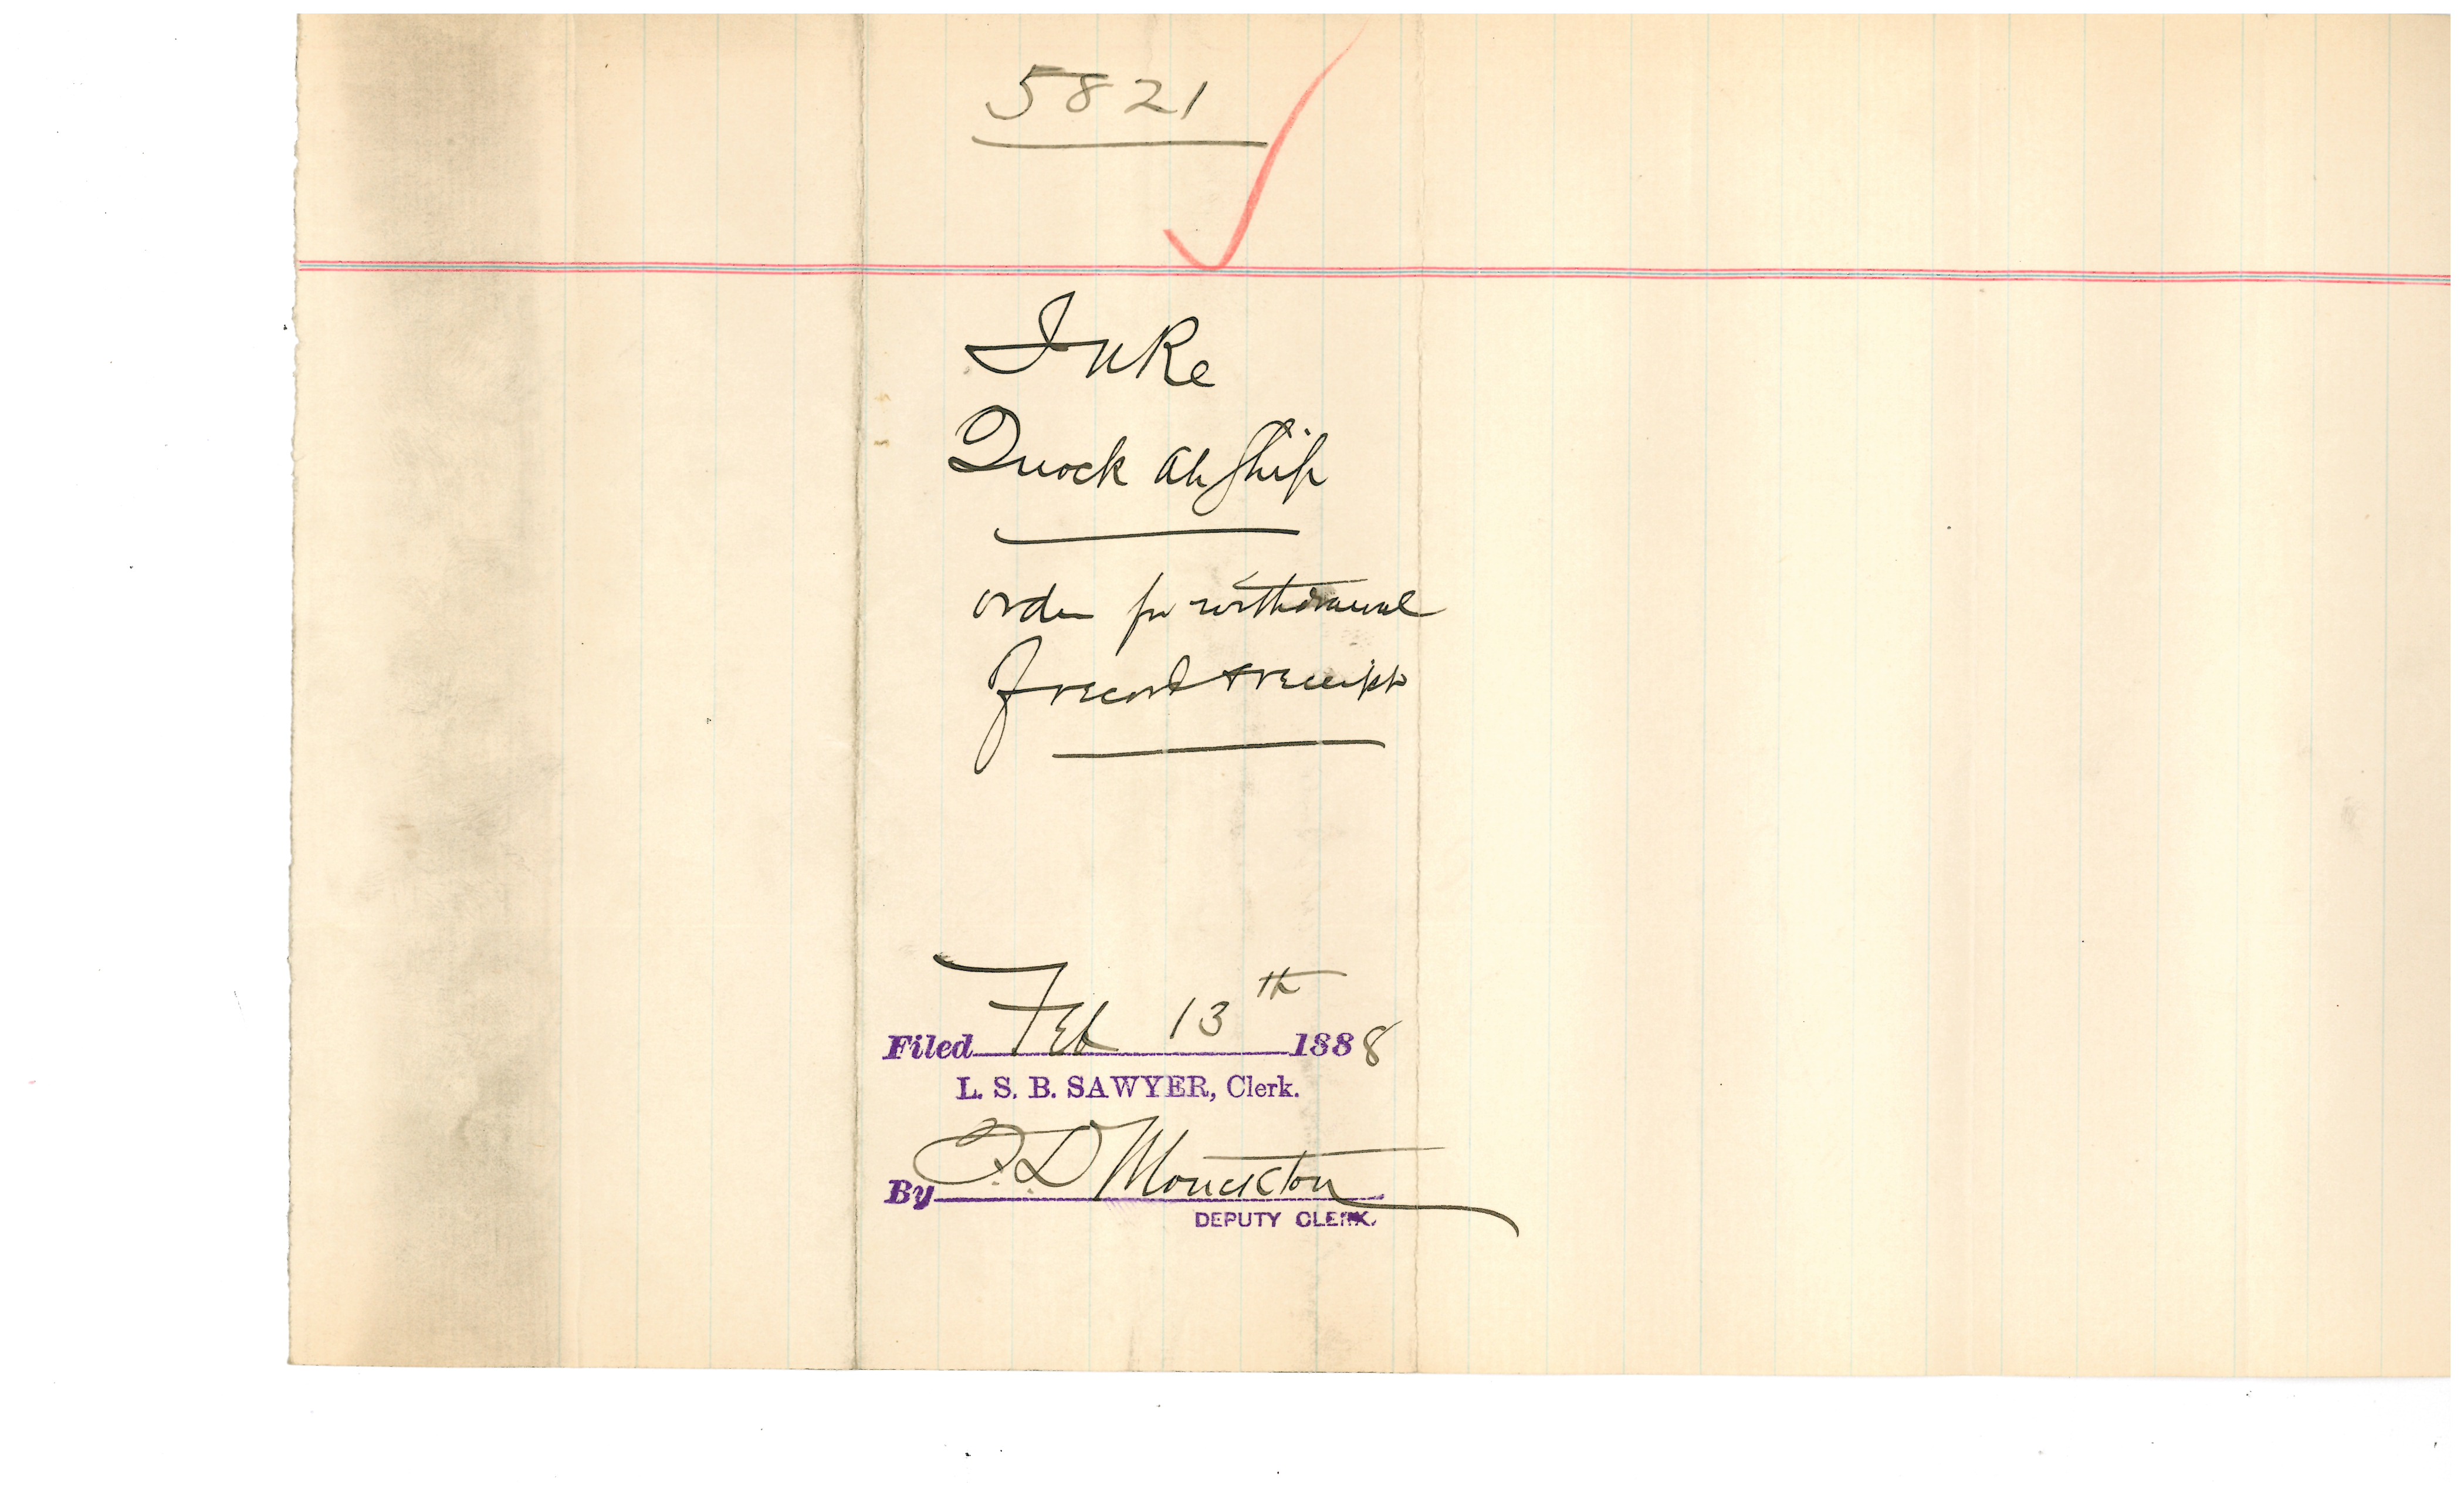 5821
In Re
Quock Ah Ship
order for withdrawal
of record & receipt
Filed Feb 13th 1888
L. S. B. SAWYER, Clerk.
By F. D. Monckton
DEPUTY CLERK.